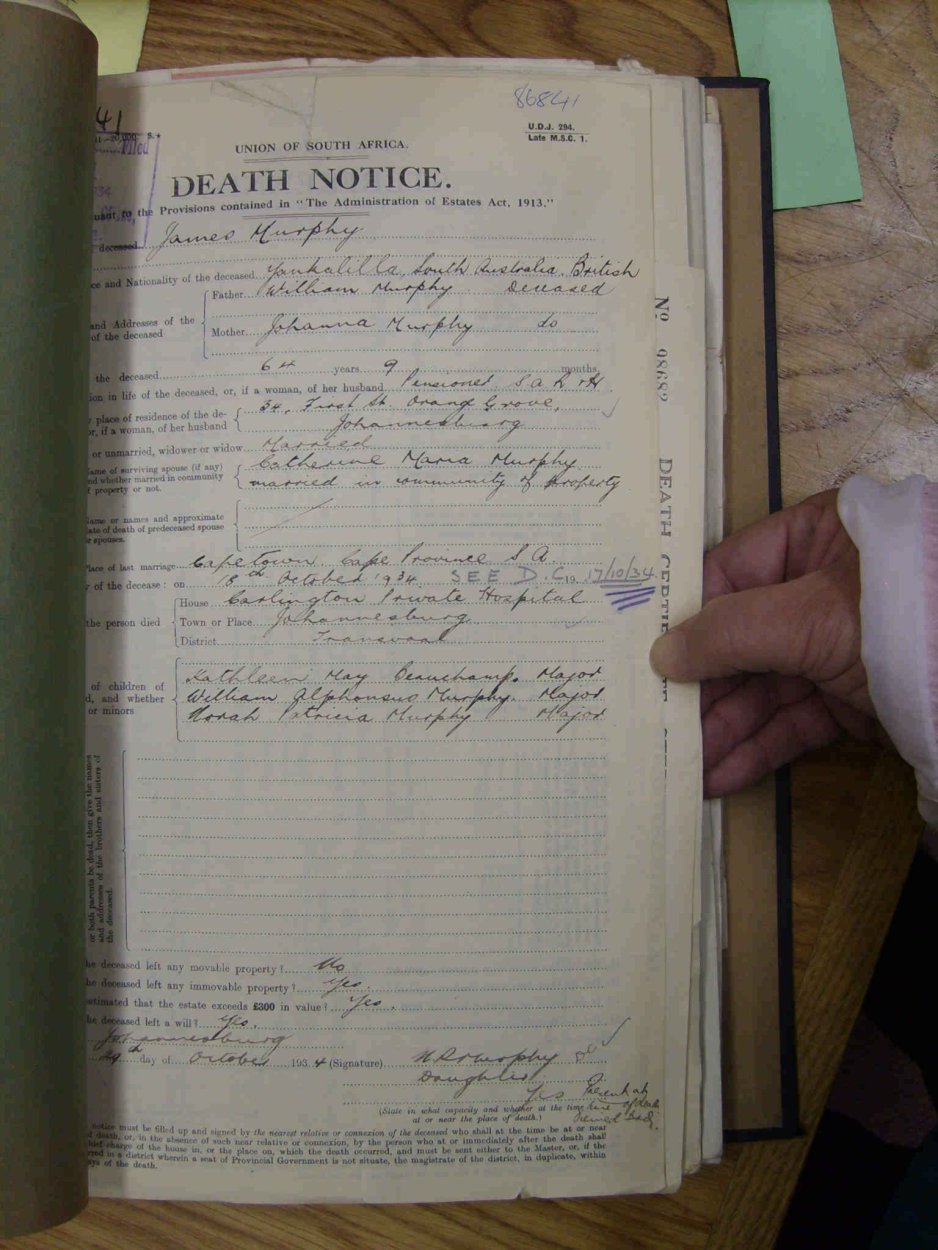 86841
41
U.D.J. 294.
Late M.S.C. 1.
Filed
UNION OF SOUTH AFRICA.
DEATH NOTICE.
uant to the Provisions contained in "The Administration of Estates Act, 1913."
deceased James Murphy
ce and Nationality of the deceased Yankalilla, South Australia British
Father William Murphy Deceased
and Addresses of the
of the deceased
Mother Johanna Murphy do
the deceased 64 years 9 months
ion in life of the deceased, or, if a woman, of her husband Pensioned S A R & H
place of residence of the de-
or, if a woman, of her husband
34, First St. Orange Grove,
Johannesburg
or unmarried, widower or widow Married
ame of surviving spouse (if any)
nd whether married in community
f property or not.
Catherine Maria Murphy
married in community of property
ame or names and approximate
ate of death of predeceased spouse
r spouses.
lace of last marriage Capetown Cape Province S A
y of the decease: on 18th October 1934 SEE D.C 19 17/10/34
the person died
House Carlington Private Hospital
Town or Place Johannesburg
District Transvaal
of children of
d, and whether
or minors
Kathleen May Beauchamp. Major
William Alphonsus Murphy. Major
Norah Patricia Murphy Major
or both parents be dead, then give the names
and addresses of the brothers and sisters of
the deceased.
he deceased left any movable property? No
he deceased left any immovable property? Yes.
estimated that the estate exceeds £300 in value? Yes.
he deceased left a will? Yes.
Johannesburg
29th day of October 1934 (Signature) N P Murphy
Daughter
Yes
(State in what capacity and whether at the time
at or near the place of death.)
notice must be filled up and signed by the nearest relative or connexion of the deceased who shall at the time be at or near
f death, or, in the absence of such near relative or connexion, by the person who at or immediately after the death shall
hief charge of the house in, or the place on, which the death occurred, and must be sent either to the Master, or, if the
rred in a district wherein a seat of Provincial Government is not situate, the magistrate of the district, in duplicate, within
ays of the death.
No 98682 DEATH CERTIF